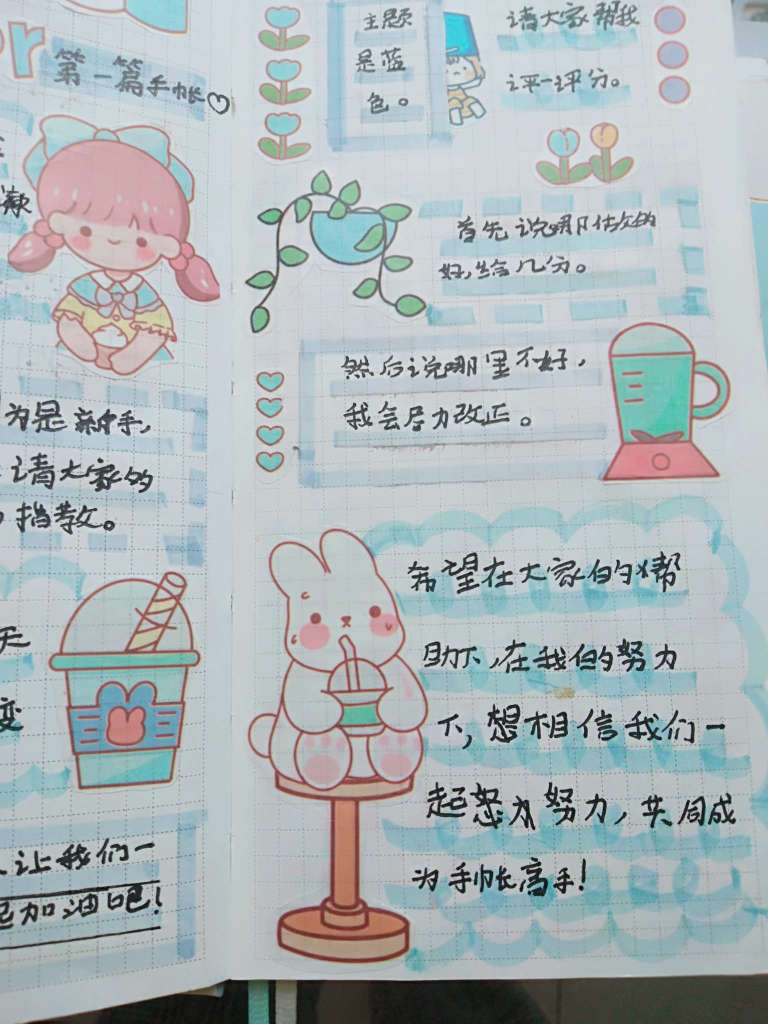 r
第一篇手帐
为是新手，
请大家的
指教。
天
变
让我们一
起加油吧！
主题
是蓝
色。
请大家帮我
评一评分。
首先说哪做的
好，给几分。
然后说哪里不好，
我会尽力改正。
希望在大家的帮
助下，在我的努力
下，想相信我们一
起努力，共同成
为手帐高手！